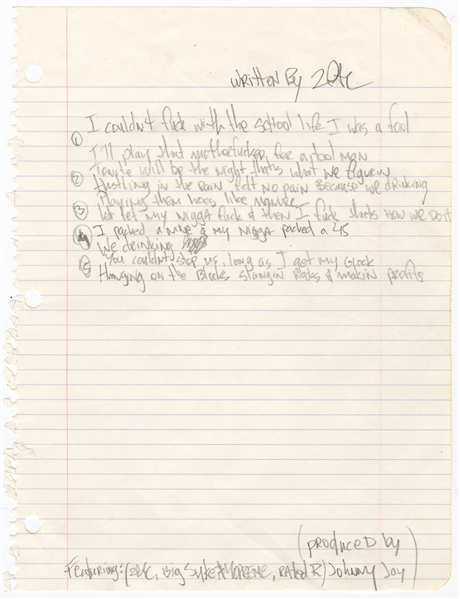 written By 2PAC
① I couldn't fuck with the school life I was a fool
I'll play that motherfucker for a tool man
② Tonite will be the night that's what we
Hustling in the rain felt no pain Because we drinking
③ Playing them hoes like
let my nigga fuck & then I fuck thats how we do it
④ I packed a nine & my nigga packed a 45
We drinking
⑤ You couldn't stop us, long as I got my Glock
Hanging on the Blocks slangin Rocks & makin profits
(produced by
Featuring: (2PAC, Big Syke, Mopreme, Rated R) Johnny Jay)